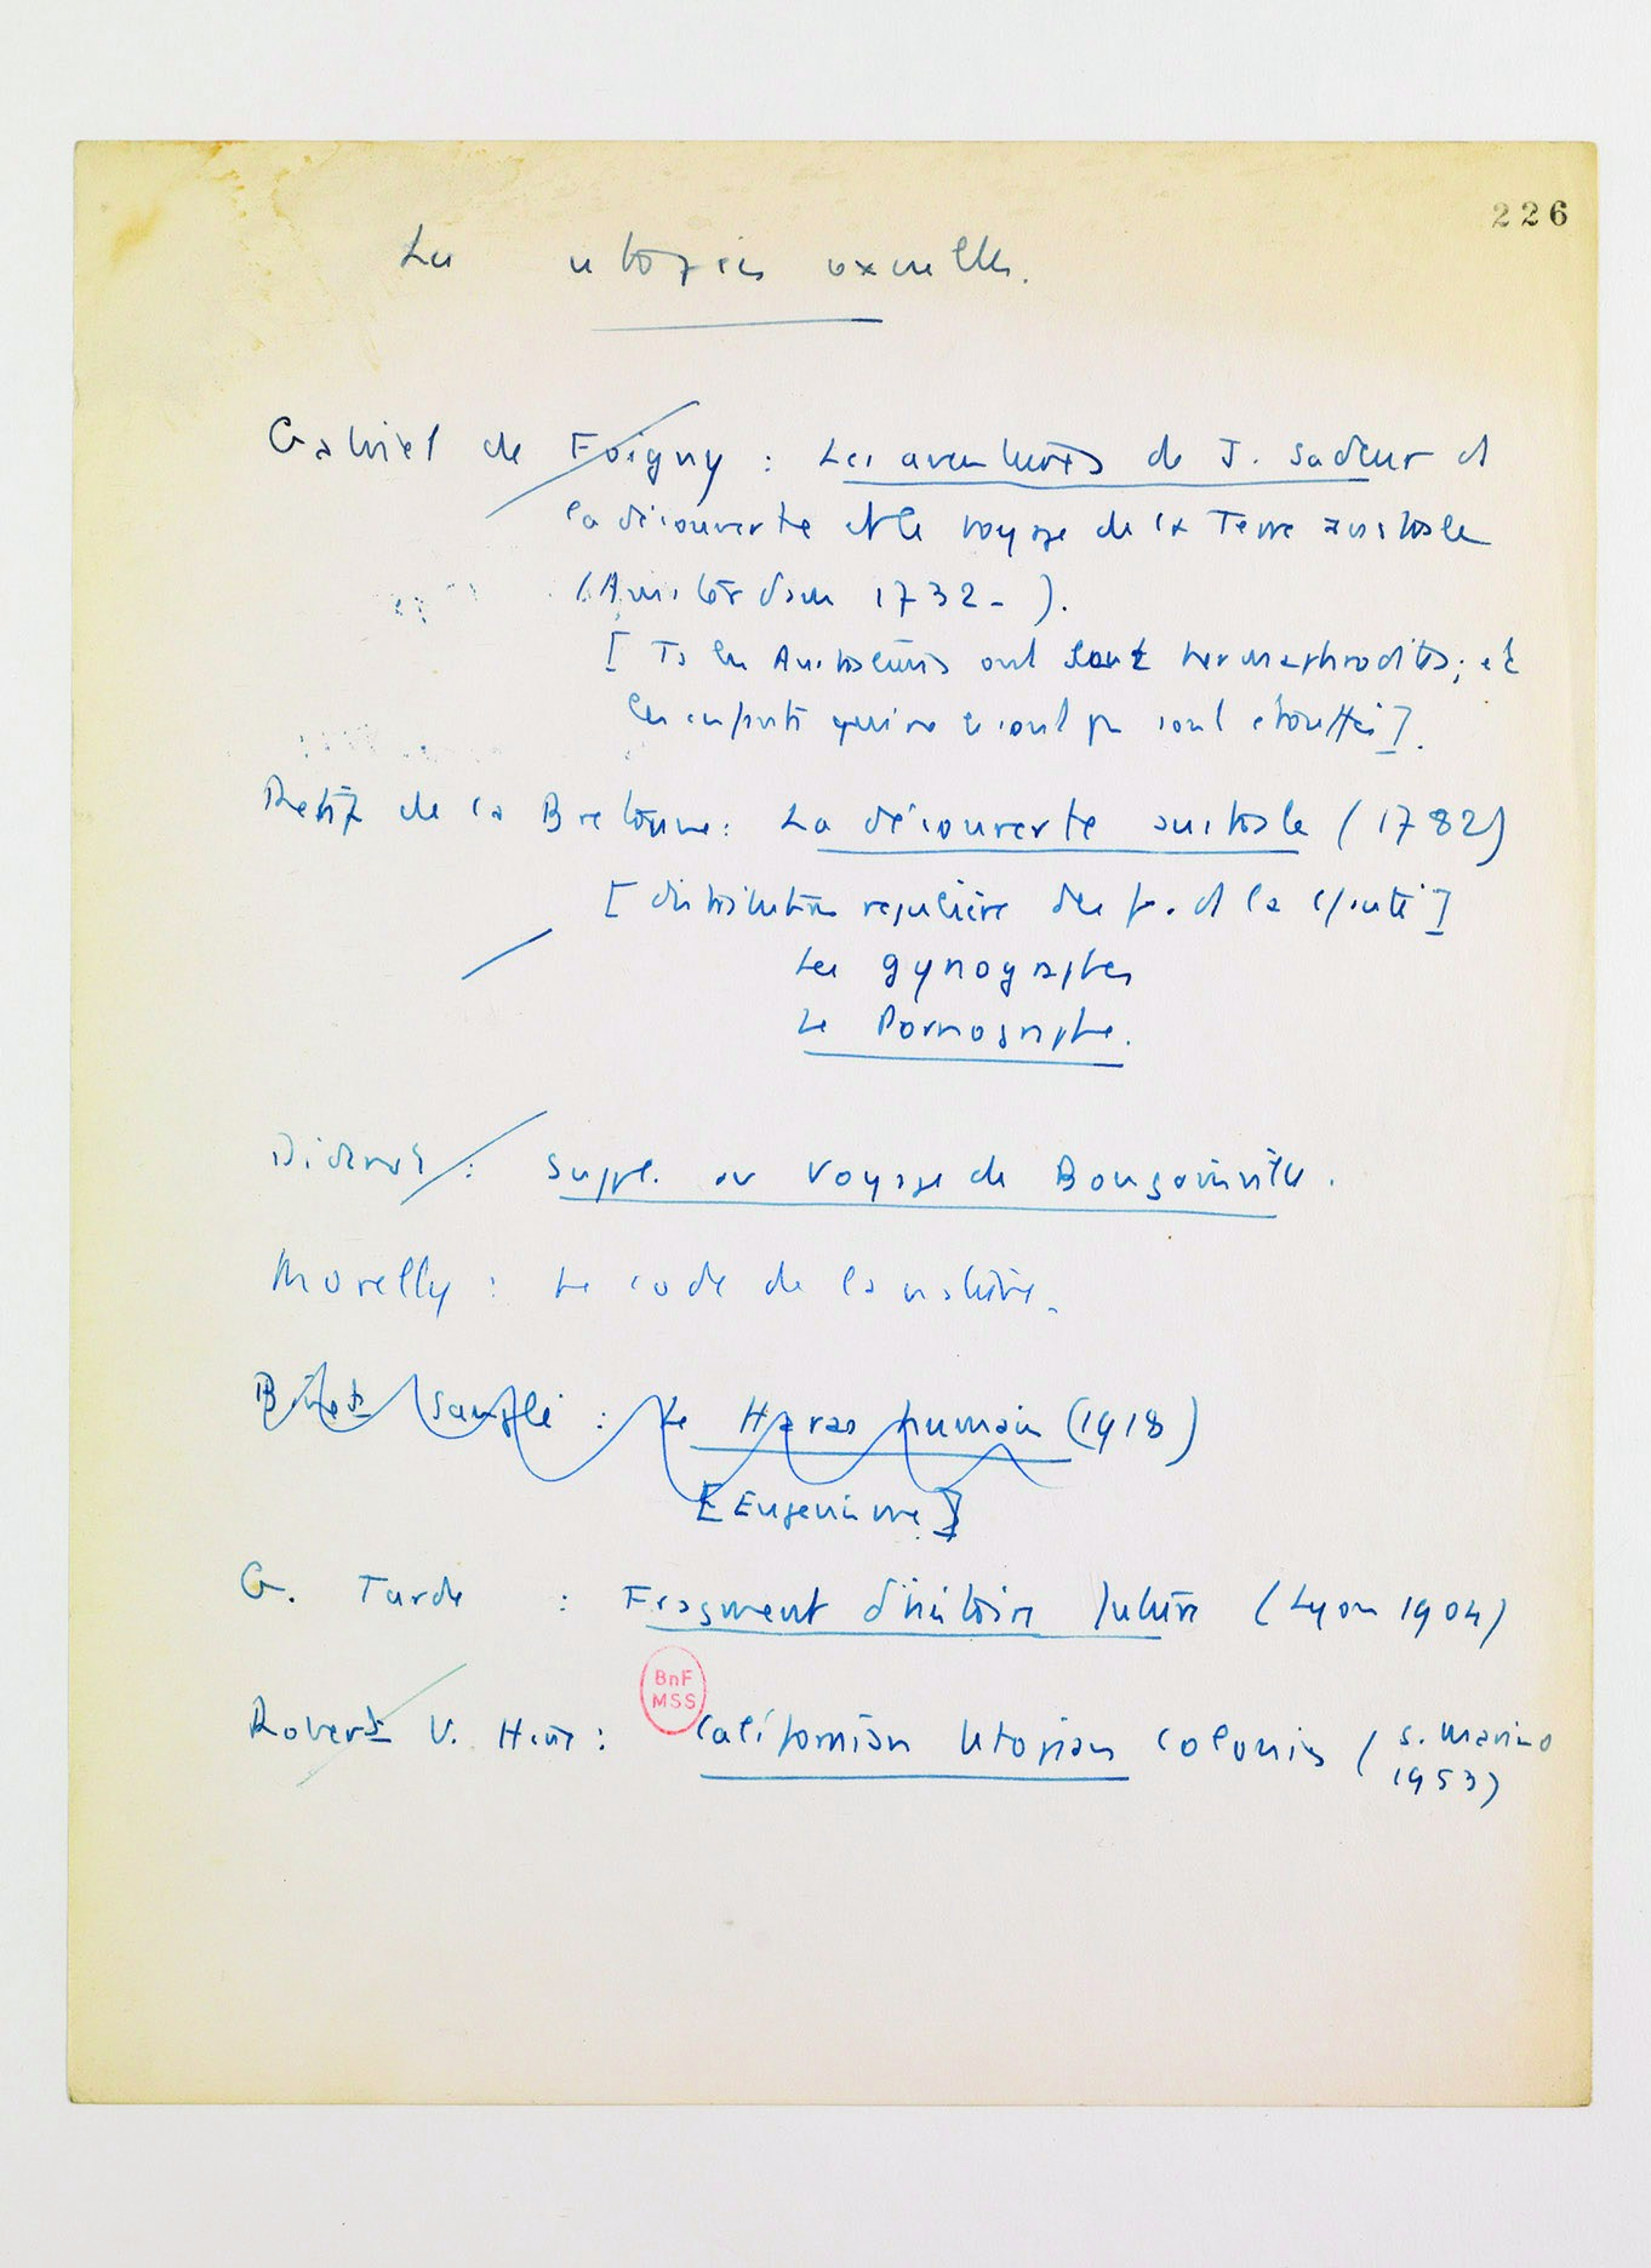 226
Les utopies sexuelles.
Gabriel de Foigny : Les aventures de J. Sadeur et
la découverte et le voyage de la Terre australe
(Amsterdam 1732- ).
[ Ts les Australiens sont hermaphrodites; et
les enfants qui ne le sont pas sont étouffés].
Rétif de la Bretonne: La découverte australe (1782)
[ distribution régulière des f. et la]
Les gynographes
Le Pornographe.
Diderot : Suppl. au Voyage de Bougainville.
Morelly : Le code de la nature.
Binet Sanglé : Le Haras humain (1918)
[Eugenisme]
G. Tarde : Fragment d'histoire future (Lyon 1904)
BnF
MSS
Robert V. Hine : Californian Utopian colonies (S. Marino
1953)